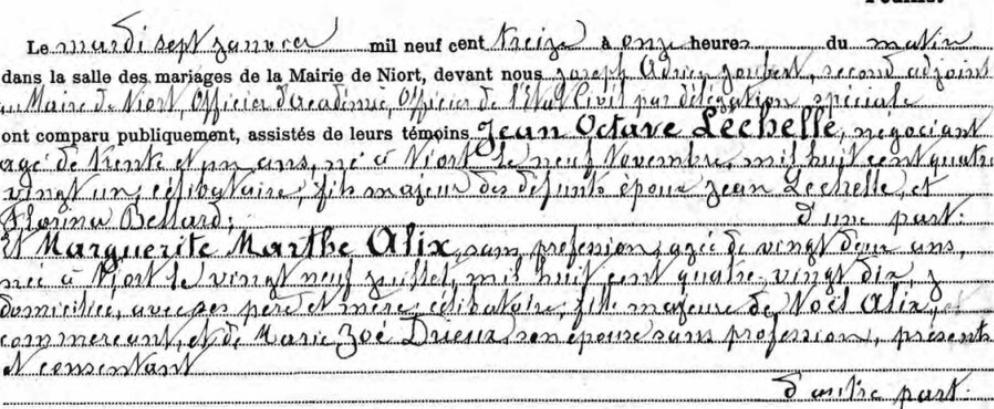 Le mardi sept janvier mil neuf cent treize à onze heures du matin
dans la salle des mariages de la Mairie de Niort, devant nous Joseph Adrien Joubert, second adjoint
au Maire de Niort, Officier d'Académie, Officier de l'Etat Civil par délégation spéciale
ont comparu publiquement, assistés de leurs témoins Jean Octave Léchelle, négociant
agé de trente et un ans, né à Niort le neuf Novembre mil huit cent quatre
vingt un, célibataire, fils majeur des défunts époux Jean Lechelle, et
Florina Bellard; d'une part.
et Marguerite Marthe Alix, sans profession, agée de vingt deux ans,
née à Niort le vingt neuf juillet, mil huit cent quatre-vingt dix, y
domiciliée, avec ses père et mère, célibataire, fille majeure de Noël Alix,
commerçant, et de Marie Zoé Drieux, son épouse sans profession, présents
et consentant
d'autre part.